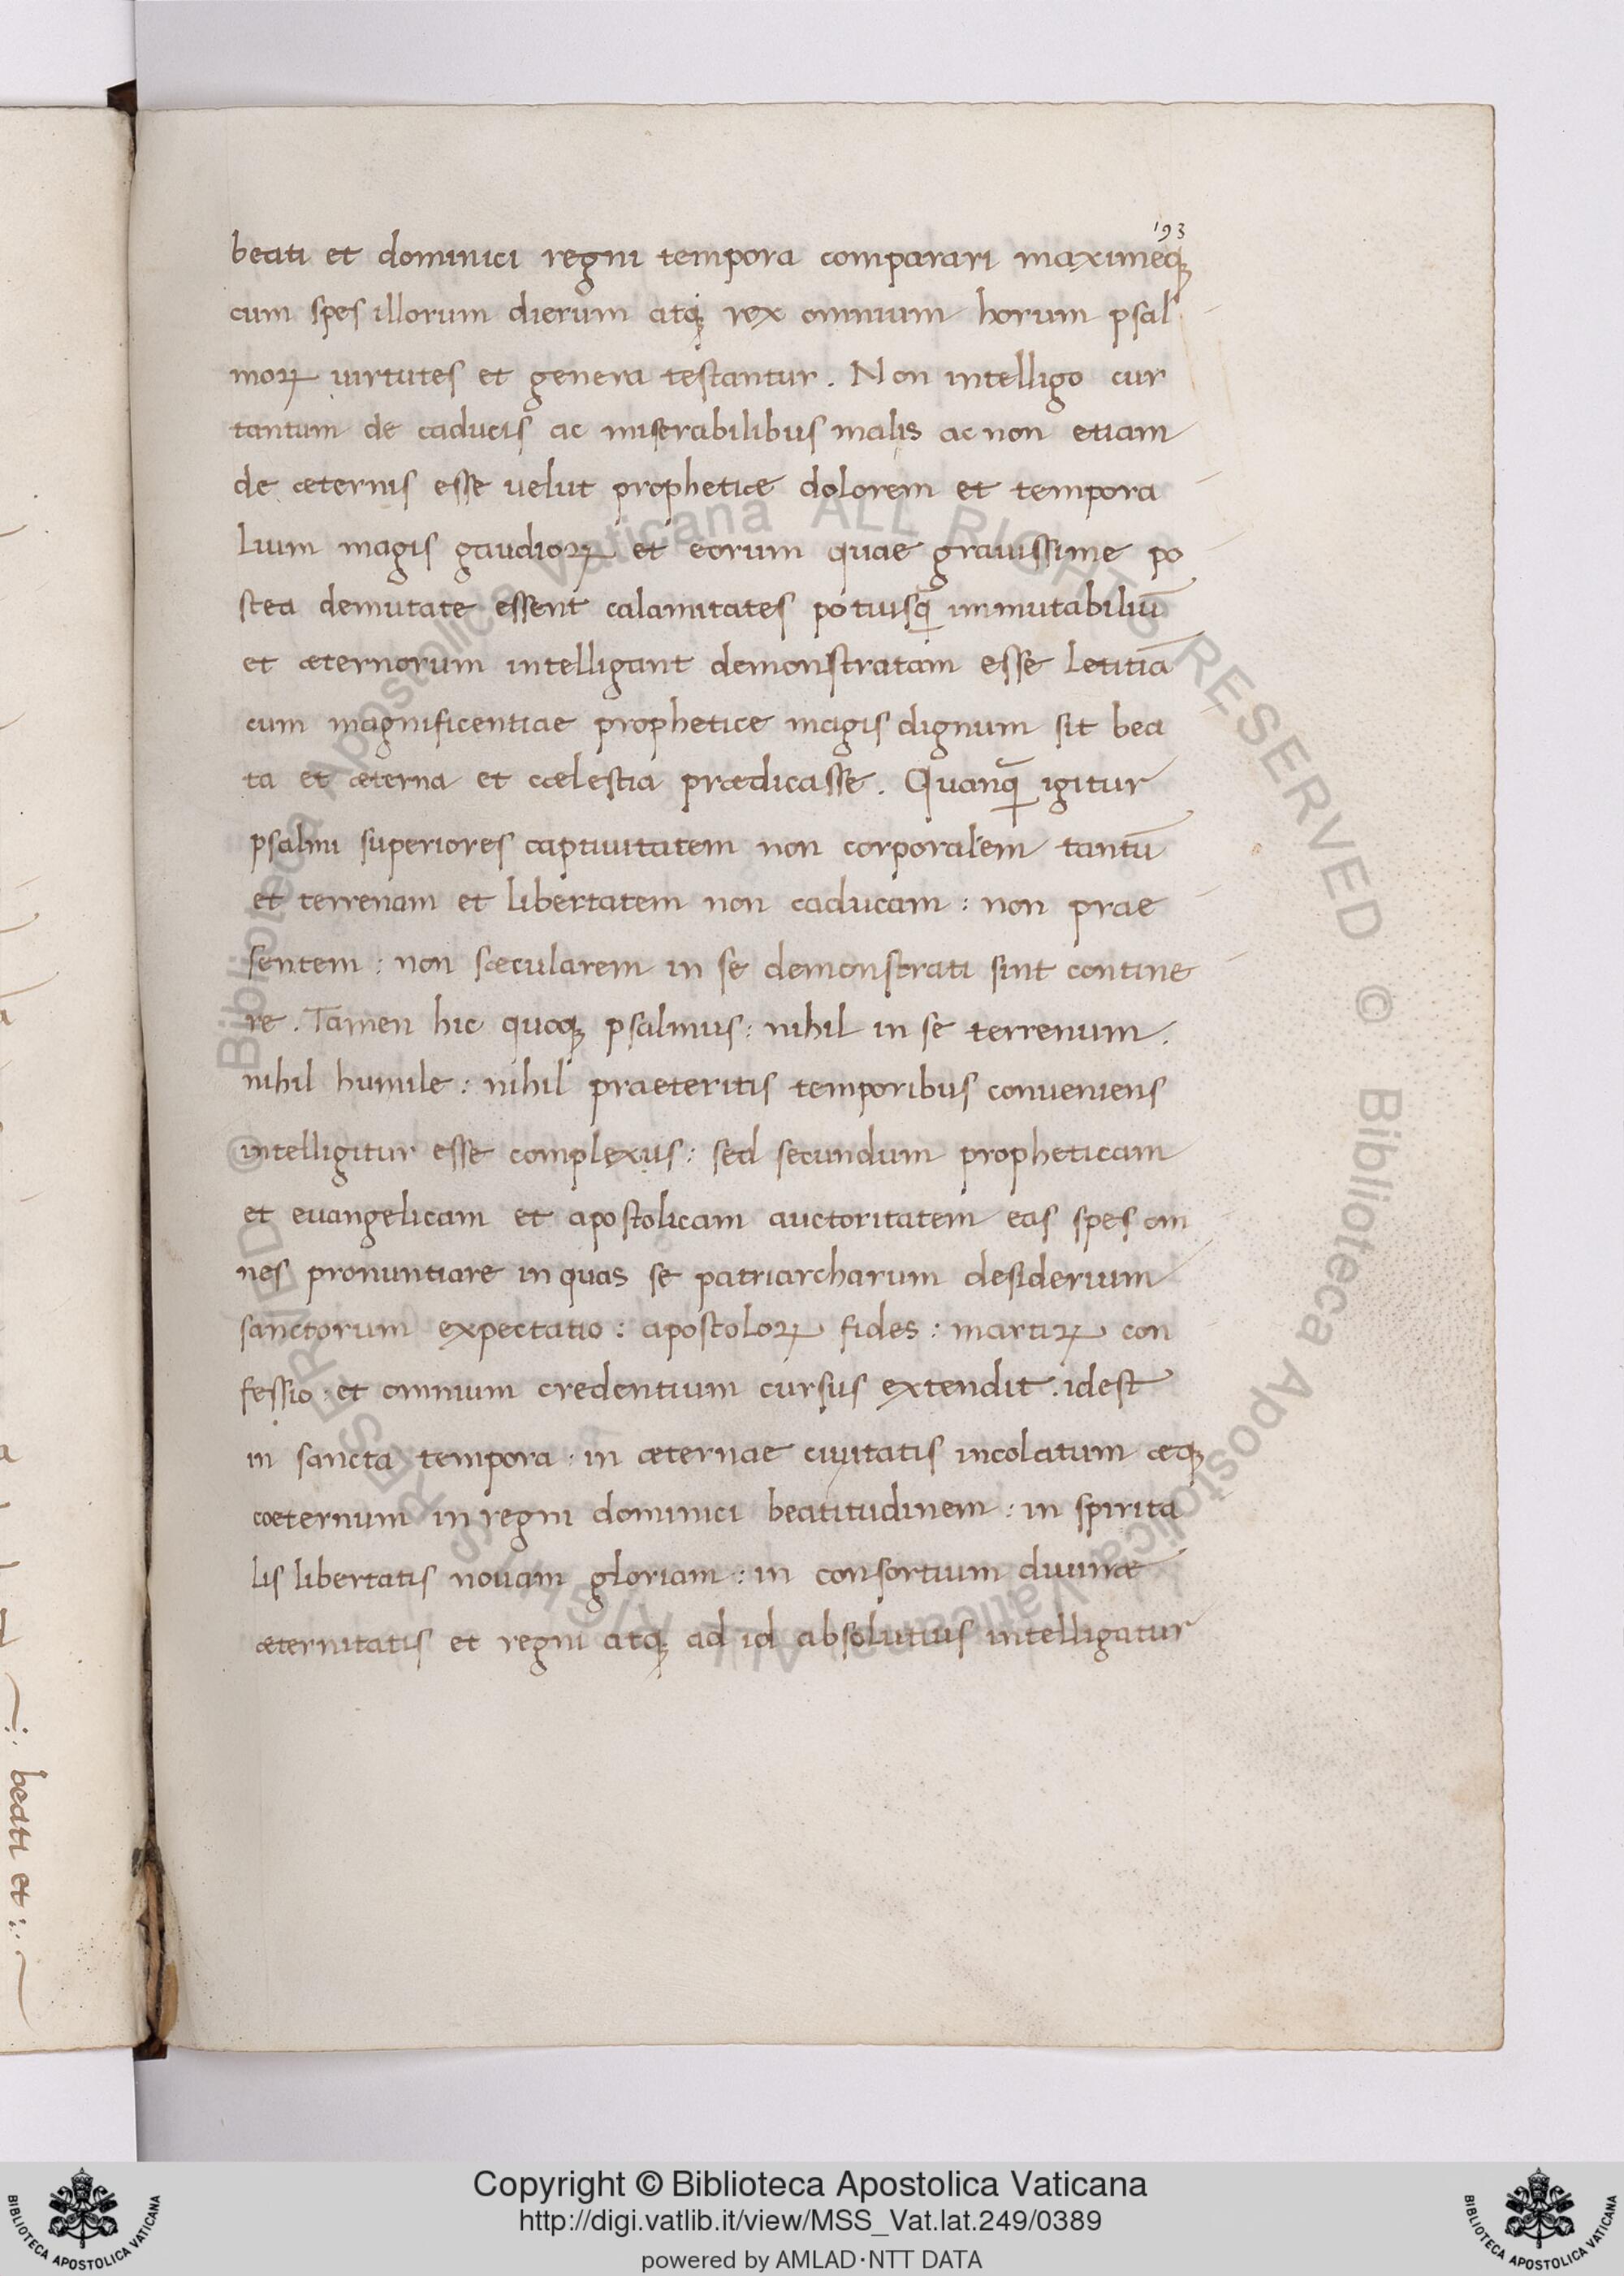 193
beati et dominici regni tempora comparari maximeqꝫ
cum spes illorum dierum atqꝫ rex omnium horum psal
moꝝ uirtutes et genera testantur. Non intelligo cur
tantum de caducis ac miserabilibus malis ac non etiam
de æternis esse uelut propheticæ dolorem et tempora
lium magis gaudioꝝ et eorum quae grauissime po
stea demutate essent calamitates potiusq̃ immutabiliū
et æternorum intelligant demonstratam esse letitiā
cum magnificentiae propheticæ magis dignum sit bea
ta et æterna et cælestia prædicasse. Quanq̃ igitur
psalmi superiores captiuitatem non corporalem tantū
et terrenam et libertatem non caducam: non prae
sentem: non sæcularem in se demonstrati sint contine
re. Tamen hic quoqꝫ psalmus: nihil in se terrenum.
nihil humile: nihil praeteritis temporibus conueniens
intelligitur esse complexus: sed secundum propheticam
et euangelicam et apostolicam auctoritatem eas spes om
nes pronuntiare in quas se patriarcharum desiderium
sanctorum expectatio: apostoloꝝ fides: martiꝝ con
fessio: et omnium credentium cursus extendit. idest
in sancta tempora: in æternae ciuitatis incolatum æqꝫ
coeternum in regni dominici beatitudinem: in spirita
lis libertatis nouam gloriam: in consortium diuinæ
æternitatis et regni atqꝫ ad id absolutius intelligatur
beati et
© Biblioteca Apostolica Vaticana ALL RIGHTS RESERVED
© Biblioteca Apostolica Vaticana ALL RIGHTS RESERVED
BIBLIOTECA APOSTOLICA VATICANA
Copyright © Biblioteca Apostolica Vaticana
http://digi.vatlib.it/view/MSS_Vat.lat.249/0389
powered by AMLAD·NTT DATA
BIBLIOTECA APOSTOLICA VATICANA